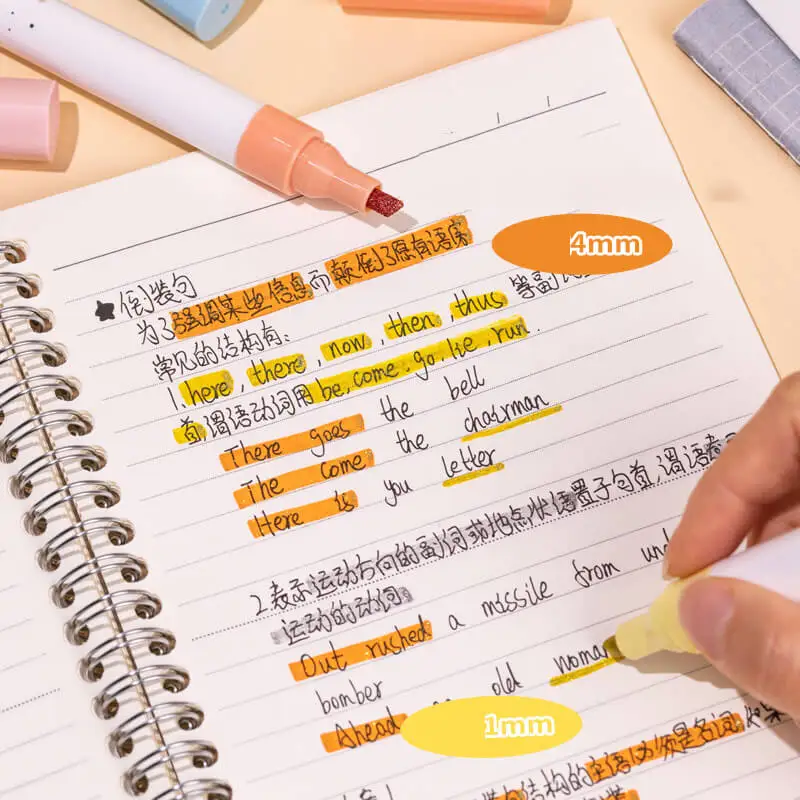 4mm
★倒装句
为了强调某些信息而颠倒了原有语序
常见的结构有:
1. here, there, now, then, thus 等副
首,谓语动词用 be, come, go, lie, run.
There goes the bell
The come the chairman
Here is you letter
2.表示运动方向的副词或地点状语置于句首,谓语
运动的动词
Out rushed a missile from
bomber
Ahead old woman
1mm
结构的主语必须是名词,如果